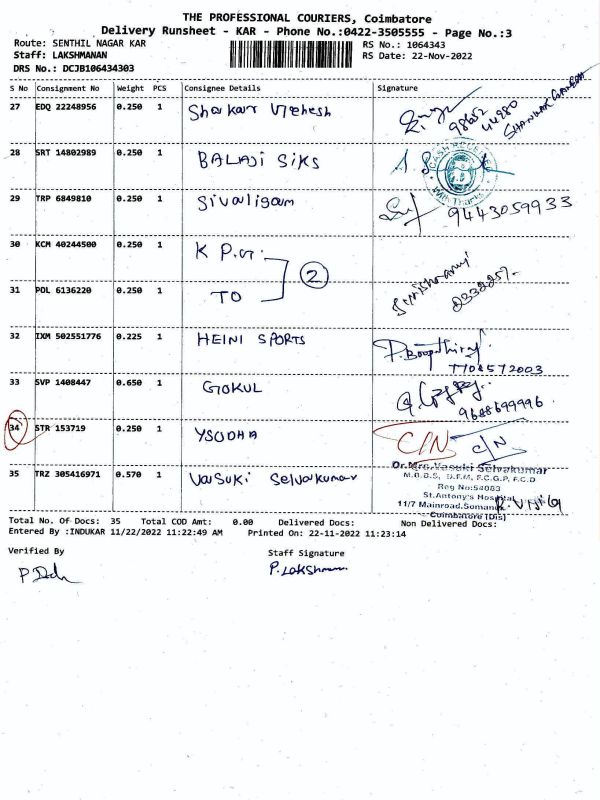 THE PROFESSIONAL COURIERS, Coimbatore
Delivery Runsheet - KAR - Phone No.:0422-3505555 - Page No.:3
Route: SENTHIL NAGAR KAR
RS No.: 1064343
Staff: LAKSHMANAN
RS Date: 22-Nov-2022
DRS No.: DCJB106434303
S No Consignment No Weight PCS Consignee Details Signature
27 EDQ 22248956 0.250 1
98652
44980
28 SRT 14802989 0.250 1 BALAJI SIKS
CASH RECEIVED
With Thanks
29 TRP 6849810 0.250 1 Sivaligam 9443059933
30 KCM 40244500 0.250 1 K P.G.
2
31 POL 6136220 0.250 1 TO
2332257
32 IXM 502551776 0.225 1 HEINI SPORTS P.Boopathiraj
7704572003
33 SVP 1408447 0.650 1 GOKUL
9688699996
34 STR 153719 0.250 1 YSODHA C/N C/N
35 TRZ 305416971 0.570 1 Vasuki Selvakumar
Dr.Mrs.Vasuki Selvakumar
M.B.B.S., D.F.M, F.C.G.P, F.C.D
Reg No:54083
St.Antony's Hospital
11/7 Mainroad.Somanur
Coimbatore (Dis)
Total No. Of Docs: 35 Total COD Amt: 0.00 Delivered Docs: Non Delivered Docs:
Entered By :INDUKAR 11/22/2022 11:22:49 AM Printed On: 22-11-2022 11:23:14
Verified By Staff Signature
P.Lakshmanan